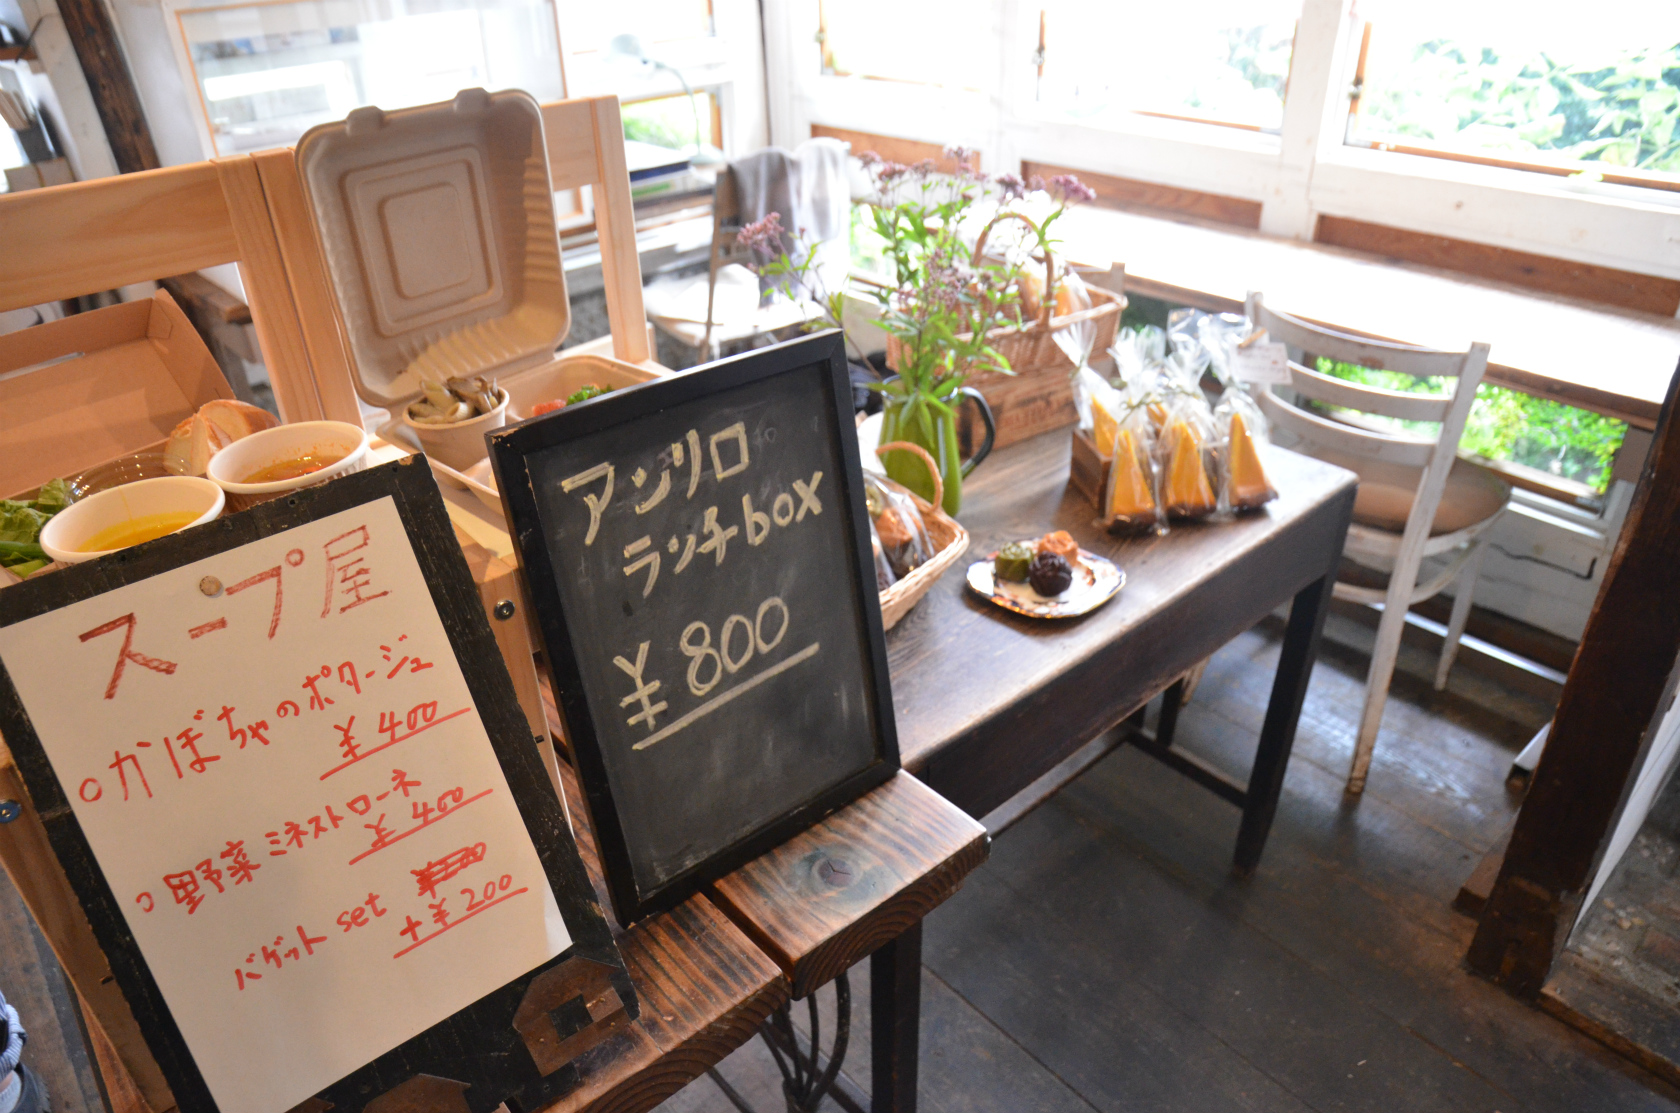 スープ屋
○かぼちゃのポタージュ
¥400
○野菜ミネストローネ
¥400
バゲット set
+¥200
アンリロ
ランチbox
¥800